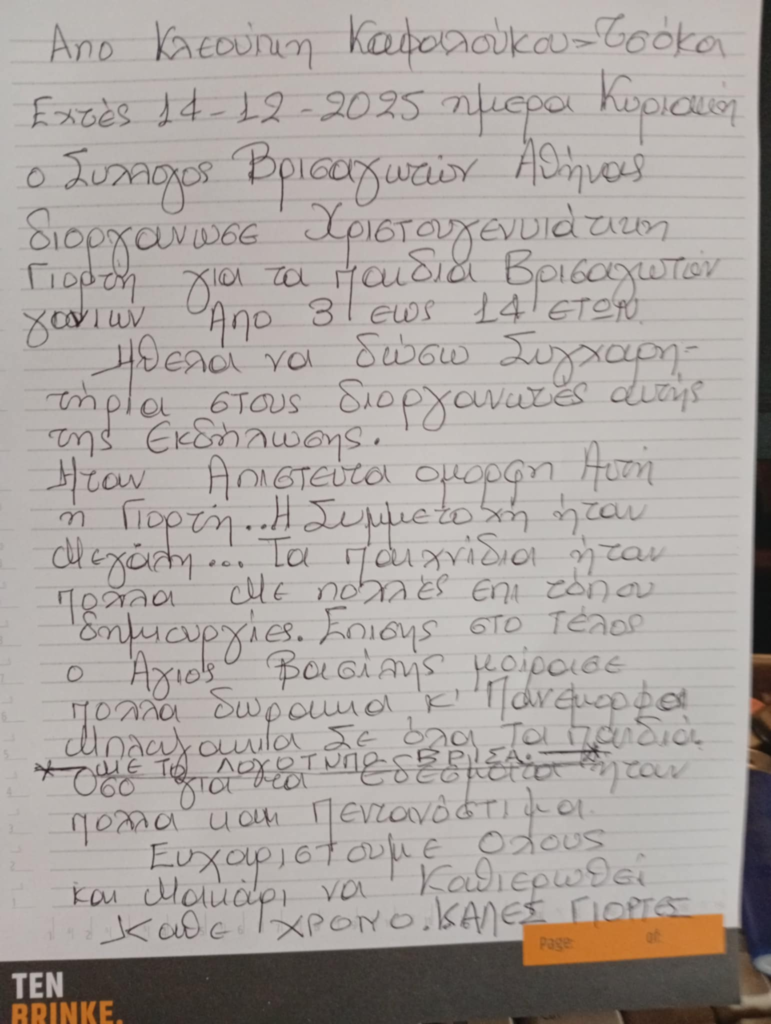 Απο Κλεονίκη Καφαλούκου-Τσόκα
Εχτές 14-12-2025 ημερα Κυριακή
ο Συλλογος Βρισαγωτών Αθήνας
διοργανωσε Χριστουγεννιάτικη
Γιορτή για τα παιδια Βρισαγωτών
γονιων Απο 3 εως 14 ετων.
Ήθελα να δώσω Συγχαρη-
τήρια στους διοργανωτές αυτής
της Εκδήλωσης.
Ήταν Απιστευτα ομορφη Αυτή
η Γιορτή..Η Συμμετοχή ήταν
Μεγάλη... Τα παιχνίδια ήταν
πολλα Με πολλές επι τόπου
δημιουργίες. Επισης στο Τέλος
ο Αγιος Βασίλης μοίρασε
πολλα δωρακια κ' Πανέμορφα
Μπλουζακια Σε όλα Τα παιδιά
* ΜΕ ΤΟ ΛΟΓΟΤΥΠΟ ΒΡΙΣΑ. *
Οσο για τα Εδεσματα ήταν
πολλα και Πεντανόστιμα.
Ευχαριστουμε Ολους
και Μακάρι να Καθιερωθεί
Καθε ΧΡΟΝΟ. ΚΑΛΕΣ ΓΙΟΡΤΕΣ
Page: of:
TEN
BRINKE.